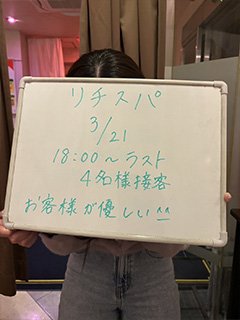 リチスパ
3/21
18:00～ラスト
4名様接客
お客様が優しい^^